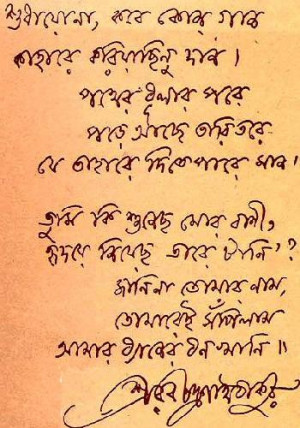 শুধায়োনা, কবে কোন্ গান
কাহারে করিয়াছিনু দান।
পথের ধূলার পরে
পড়ে আছে তারি তরে
যে তাহারে দিতে পারে মান।
তুমি কি শুনেছ মোর বাণী,
হৃদয়ে নিয়েছ তারে টানি?
জানি না তোমার নাম,
তোমারেই সঁপিলাম
আমার ধ্যানের ধনখানি॥
শ্রীরবীন্দ্রনাথ ঠাকুর